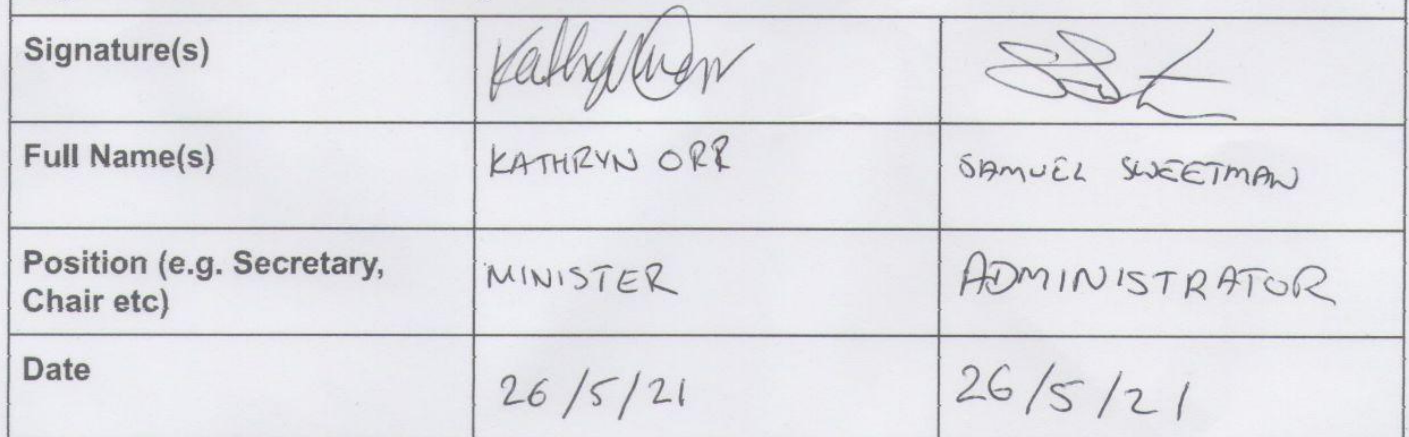 Signature(s)
Full Name(s) KATHRYN ORR SAMUEL SWEETMAN
Position (e.g. Secretary,
Chair etc) MINISTER ADMINISTRATOR
Date 26/5/21 26/5/21